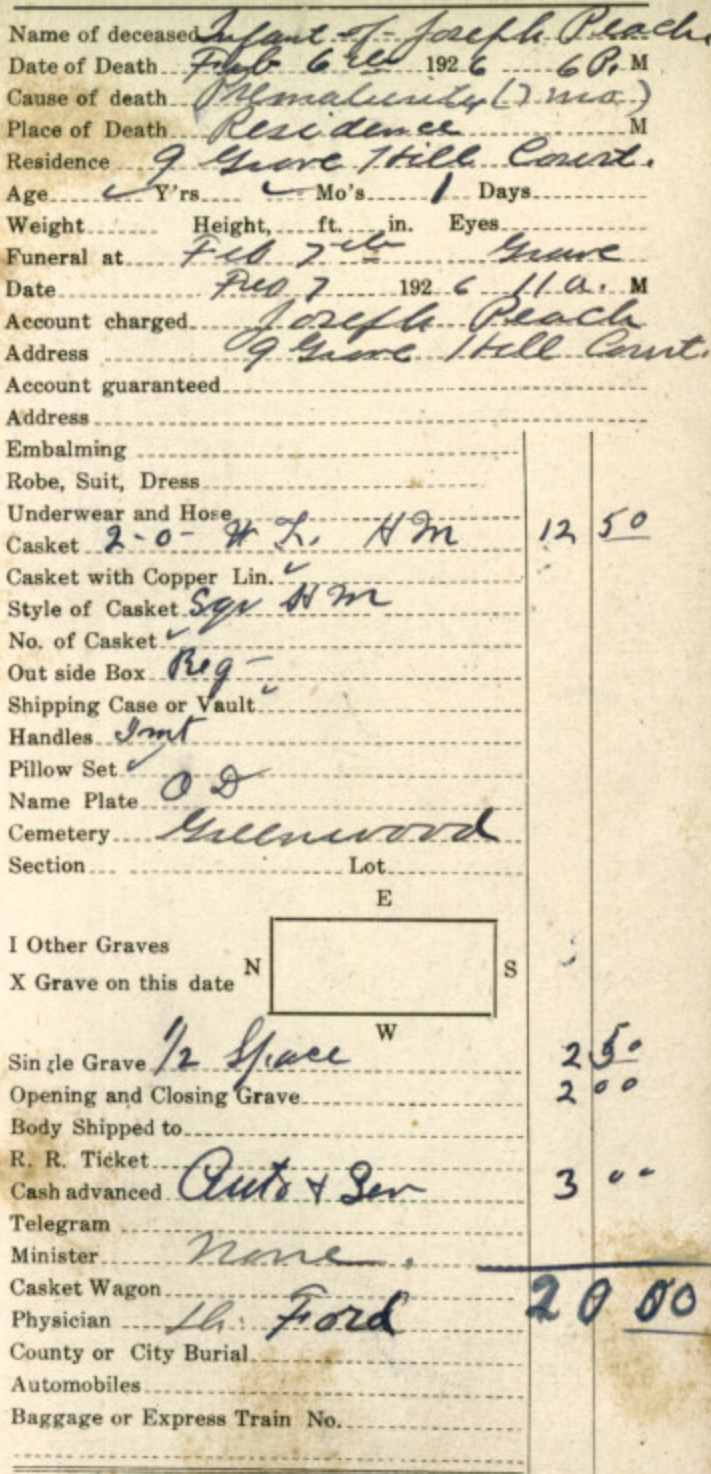 Name of deceased Infant of Joseph Peach
Date of Death Feb 6th 1926 6 P. M
Cause of death Prematurity (7 mo)
Place of Death Residence M
Residence 9 Grove Hill Court.
Age ✓ Y'rs ✓ Mo's 1 Days
Weight Height, ft. in. Eyes
Funeral at Feb 7th Grave
Date Feb 7 1926 11 a. M
Account charged Joseph Peach
Address 9 Grove Hill Court.
Account guaranteed
Address
Embalming
Robe, Suit, Dress
Underwear and Hose
Casket 2-0- W L. H M 12 50
Casket with Copper Lin. ✓
Style of Casket Sqr H M
No. of Casket ✓
Out side Box Reg -
Shipping Case or Vault ✓
Handles Imt
Pillow Set ✓
Name Plate O D
Cemetery Greenwood
Section Lot
E
I Other Graves
N S
X Grave on this date
W
Single Grave 1/2 Space 2 50
Opening and Closing Grave 2 00
Body Shipped to
R. R. Ticket
Cash advanced Auto & Ser 3 00
Telegram
Minister None.
Casket Wagon 20 00
Physician Ford
County or City Burial
Automobiles
Baggage or Express Train No.